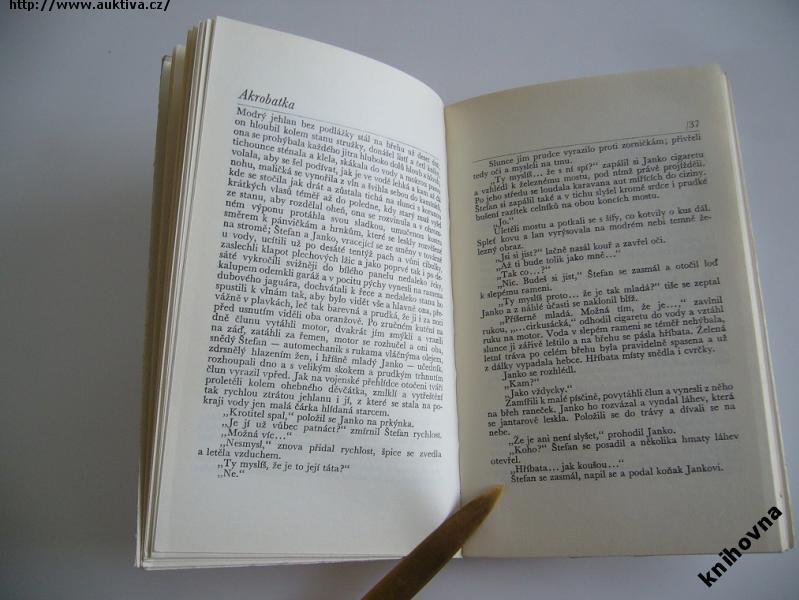 http://www.auktiva.cz/
Akrobatka
Modrý jehlan bez podlážky stál na břehu už deset dní,
on hloubil kolem stanu stružky, donášel listí a čeřil oheň,
ona se prohýbala každého jitra hluboko dolů
tichounce sténala a klela, skákala do vody a
volala, aby se šel podívat, jak je ve vodě lehká a kam
nohu, maličká se vynořila z vln a švihla sebou do kamení,
kde se stočila jak drát a zůstala tichá na slunci s koronou
krátkých vlasů téměř až do poledne, kdy starý muž vylezl
ze stanu, aby rozdělal oheň, ona se rozvinula a v obráceném
výponu protáhla svou sladkou, umučenou kostru
směrem k pánvičkám a hrnkům, které se leskly rozvěšeny
na stromě; Štefan a Janko, vracející se ze směny v továrně
u vody, ucítili už po desáté tentýž pach a vůni cibulky,
zaslechli klapot plechových lžic a jako poprvé tak i po desáté
vykročili svižněji do bílého panelu nedaleko řeky,
kalupem odemkli garáž a v pocitu pýchy vynesli na ramenou
dubového jaguára, dochvátali k řece a nedaleko stanu ho
spustili k vlnám tak, aby bylo vidět vše a hlavně jich dvou
vážně v plavkách, leč tak barevná a prudká, že ji i za noci
před usnutím viděli oba oranžově. Po zručném kutění na
dně člunu vytáhli motor, dvakrát jím smýkli a vrazili
na záď, zatáhli za řemen, motor se rozhučel a oni oba,
snědý Štefan – automechanik s rukama vláčnýma olejem,
zdrsnělý hlazením žen, i hříšně mladý Janko – učedník,
rozhoupali dno a s velikým skokem a prudkým trhnutím
člun vyrazil vpřed. Jak na vojenské přehlídce otočeni tváří
proletěli kolem ohebného děvčátka, zmlklí a vytřeštění
tak rychlou ztrátou jehlanu i jí, z které se stala na pokraji
vody jen malá čárka hlídaná starcem.
„Krotitel spal,“ položil se Janko na prkýnka.
„Je jí už vůbec patnáct?“ zmírnil Štefan rychlost.
„Možná víc...“
„Nesmysl,“ znova přidal rychlost, špice se zvedla
a letěla vzduchem.
„Ty myslíš, že je to její táta?“
„Ne.“
/37
Slunce jim prudce vyrazilo proti zorničkám; přivřeli
tedy oči a mysleli na tmu.
„Ty myslíš... že s ní spí?“ zapálil si Janko cigaretu
a vzhlédl k železnému mostu, pod nímž právě projížděli.
Po jeho středu se loudala karavana aut mířících do ciziny.
Štefan si zapálil také a v tichu slyšel kromě srdce i prudké
bušení razítek celníků na obou koncích mostu.
„Jo.“
Uletěli mostu a potkali se s šífy, co kotvily o kus dál.
Spleť kovu a lan vyrýsovala na modrém nebi temně železný
obraz.
„Jsi si jist?“ lačně nasál kouř a zavřel oči.
„Až ti bude tolik jako mně...“
„Tak co...?“
„Nic. Budeš si jist,“ Štefan se zasmál a otočil loď
k slepému rameni.
„Ty myslíš proto... že je tak mladá?“ tiše se zeptal
Janko a z náhlé účasti se naklonil blíž.
„Příšerně mladá. Možná tím, že je....“ zavlnil
rukou, „....cirkusácká,“ odhodil cigaretu do vody a vztáhl
ruku na motor. Voda v slepém rameni se téměř nehýbala,
slunce jí zářivě leštilo a na břehu se pásla hříbata. Zelená
letní tráva po celém břehu byla pravidelně spasena a už
z dálky vypadala hebce. Hříbata místy snědla i cvrčky.
Janko se rozhlédl.
„Kam?“
„Jako vždycky.“
Zamířili k malé písčině, povytáhli člun a vynesli z něho
na břeh raneček. Janko ho rozvázal a vyndal láhev, která
se jantarově leskla. Položili se do trávy a dívali se na
nebe.
„Že je ani není slyšet,“ prohodil Janko.
„Koho?“ Štefan se posadil a několika hmaty láhev
otevřel.
„Hříbata... jak koušou...“
Štefan se zasmál, napil se a podal koňak Jankovi.
knihovna